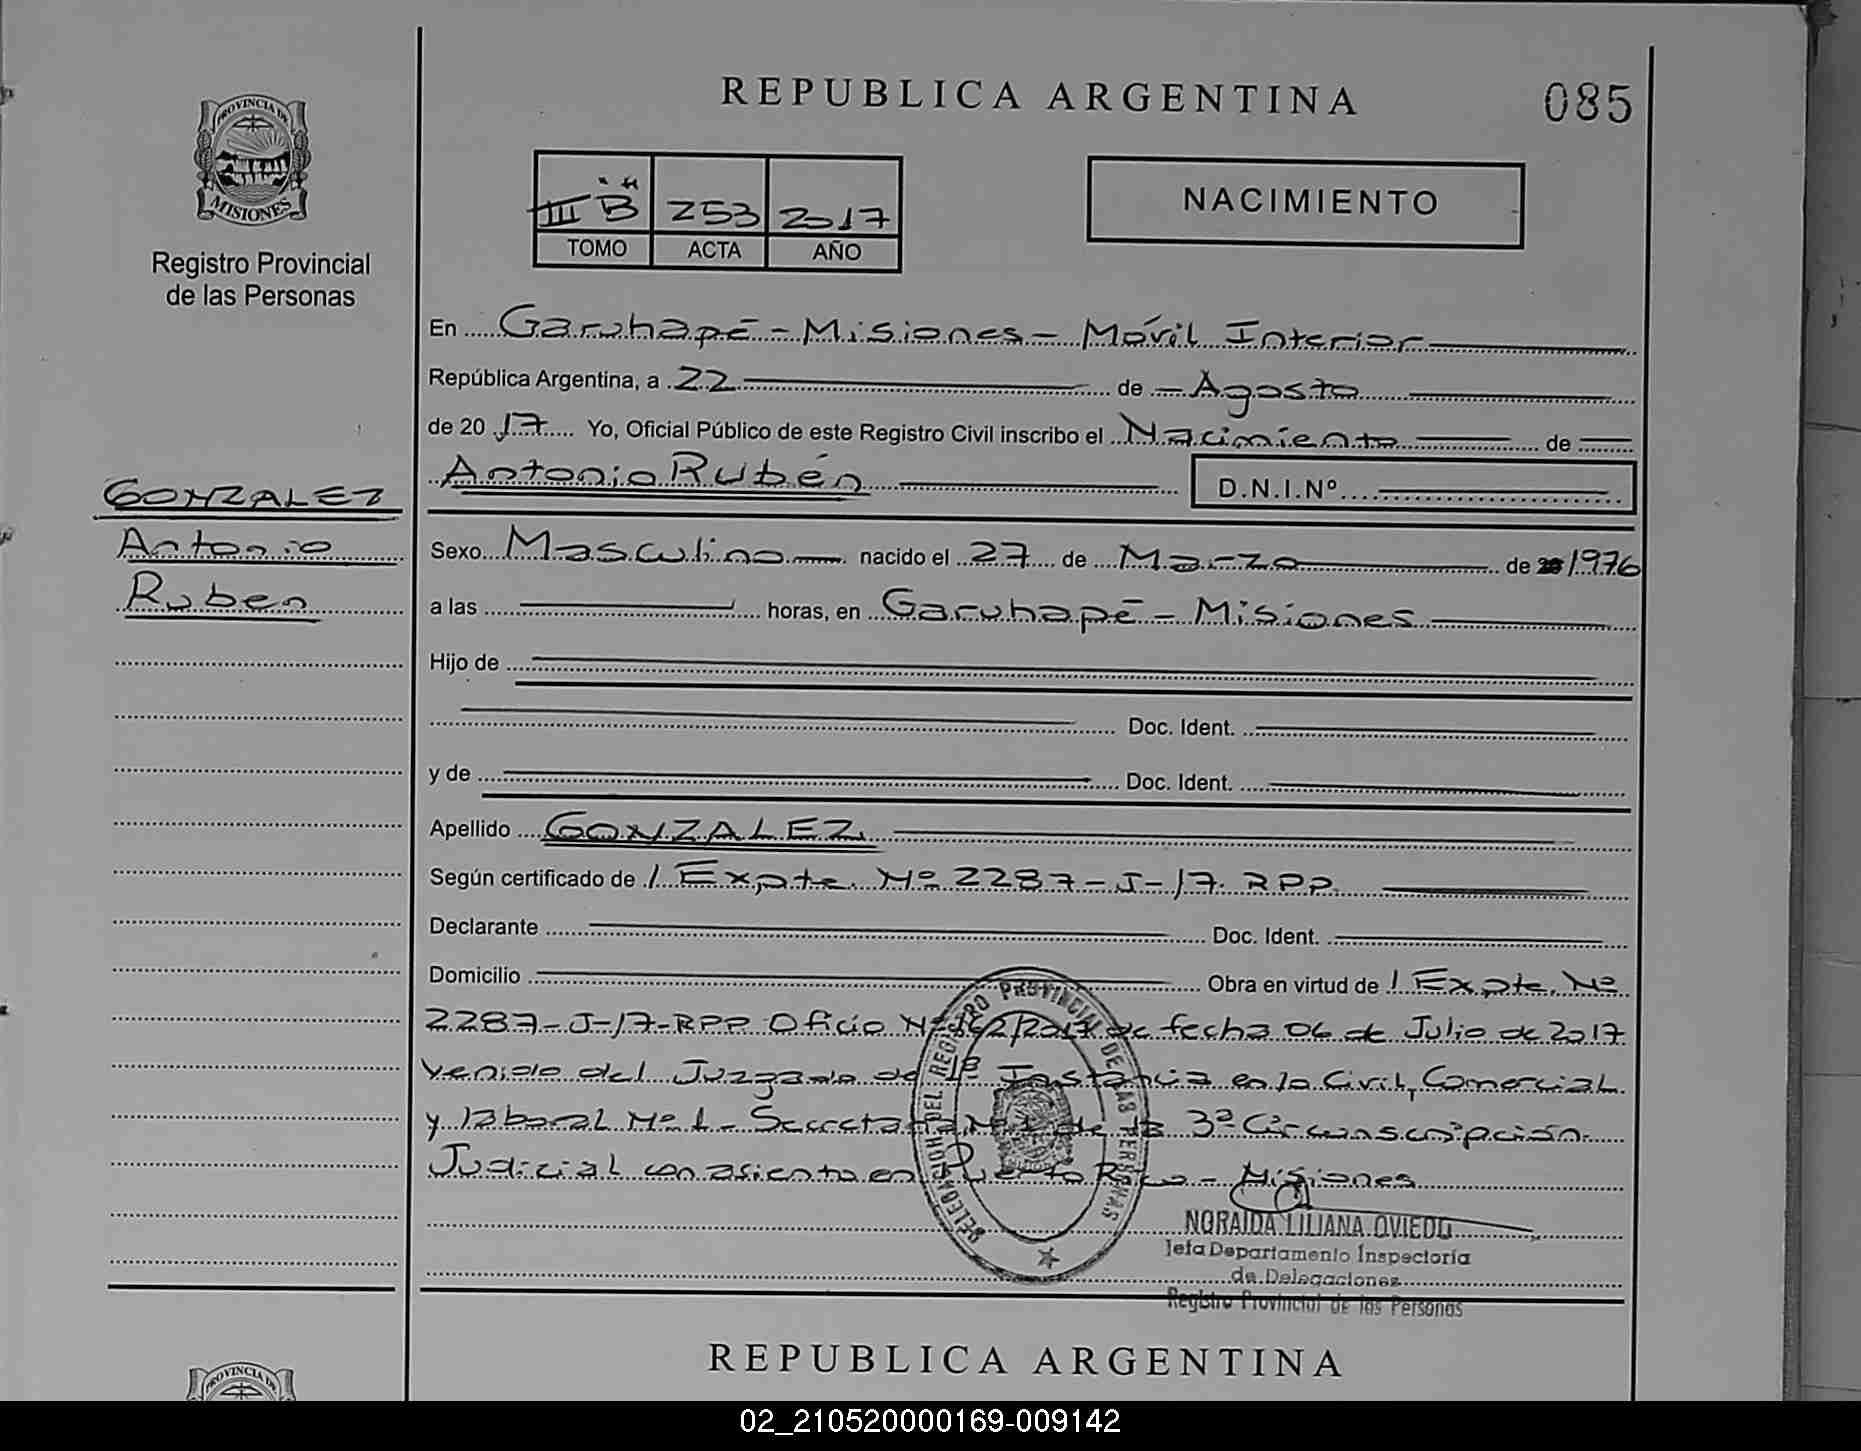 REPUBLICA ARGENTINA
085
PROVINCIA DE
MISIONES
Registro Provincial
de las Personas
III "B" 253 2017
TOMO ACTA AÑO
NACIMIENTO
En Garuhapé - Misiones - Móvil Interior
República Argentina, a 22 de Agosto
de 20 17 Yo, Oficial Público de este Registro Civil inscribo el Nacimiento de
Antonio Rubén D.N.I.Nº
GONZALEZ
Antonio
Ruben
Sexo Masculino nacido el 27 de Marzo de 1976
a las horas, en Garuhapé - Misiones
Hijo de
Doc. Ident.
y de Doc. Ident.
Apellido GONZALEZ
Según certificado de / Expte. Nº 2287-J-17. RPP.
Declarante Doc. Ident.
Domicilio Obra en virtud de / Expte. Nº
2287-J-17-RPP Oficio Nº 162/2017 de fecha 06 de Julio de 2017
venido del Juzgado de 1ª Instancia en lo Civil, Comercial
y laboral Nº 1 - Secretaria Nº 1 de la 3ª Circunscripción
Judicial con asiento en Puerto Rico - Misiones
DEL REGISTRO PROVINCIAL DE LAS PERSONAS
NORAIDA LILIANA OVIEDO
Jefa Departamento Inspectoria
de Delegaciones
Registro Provincial de las Personas
REPUBLICA ARGENTINA
PROVINCIA DE
02_210520000169-009142